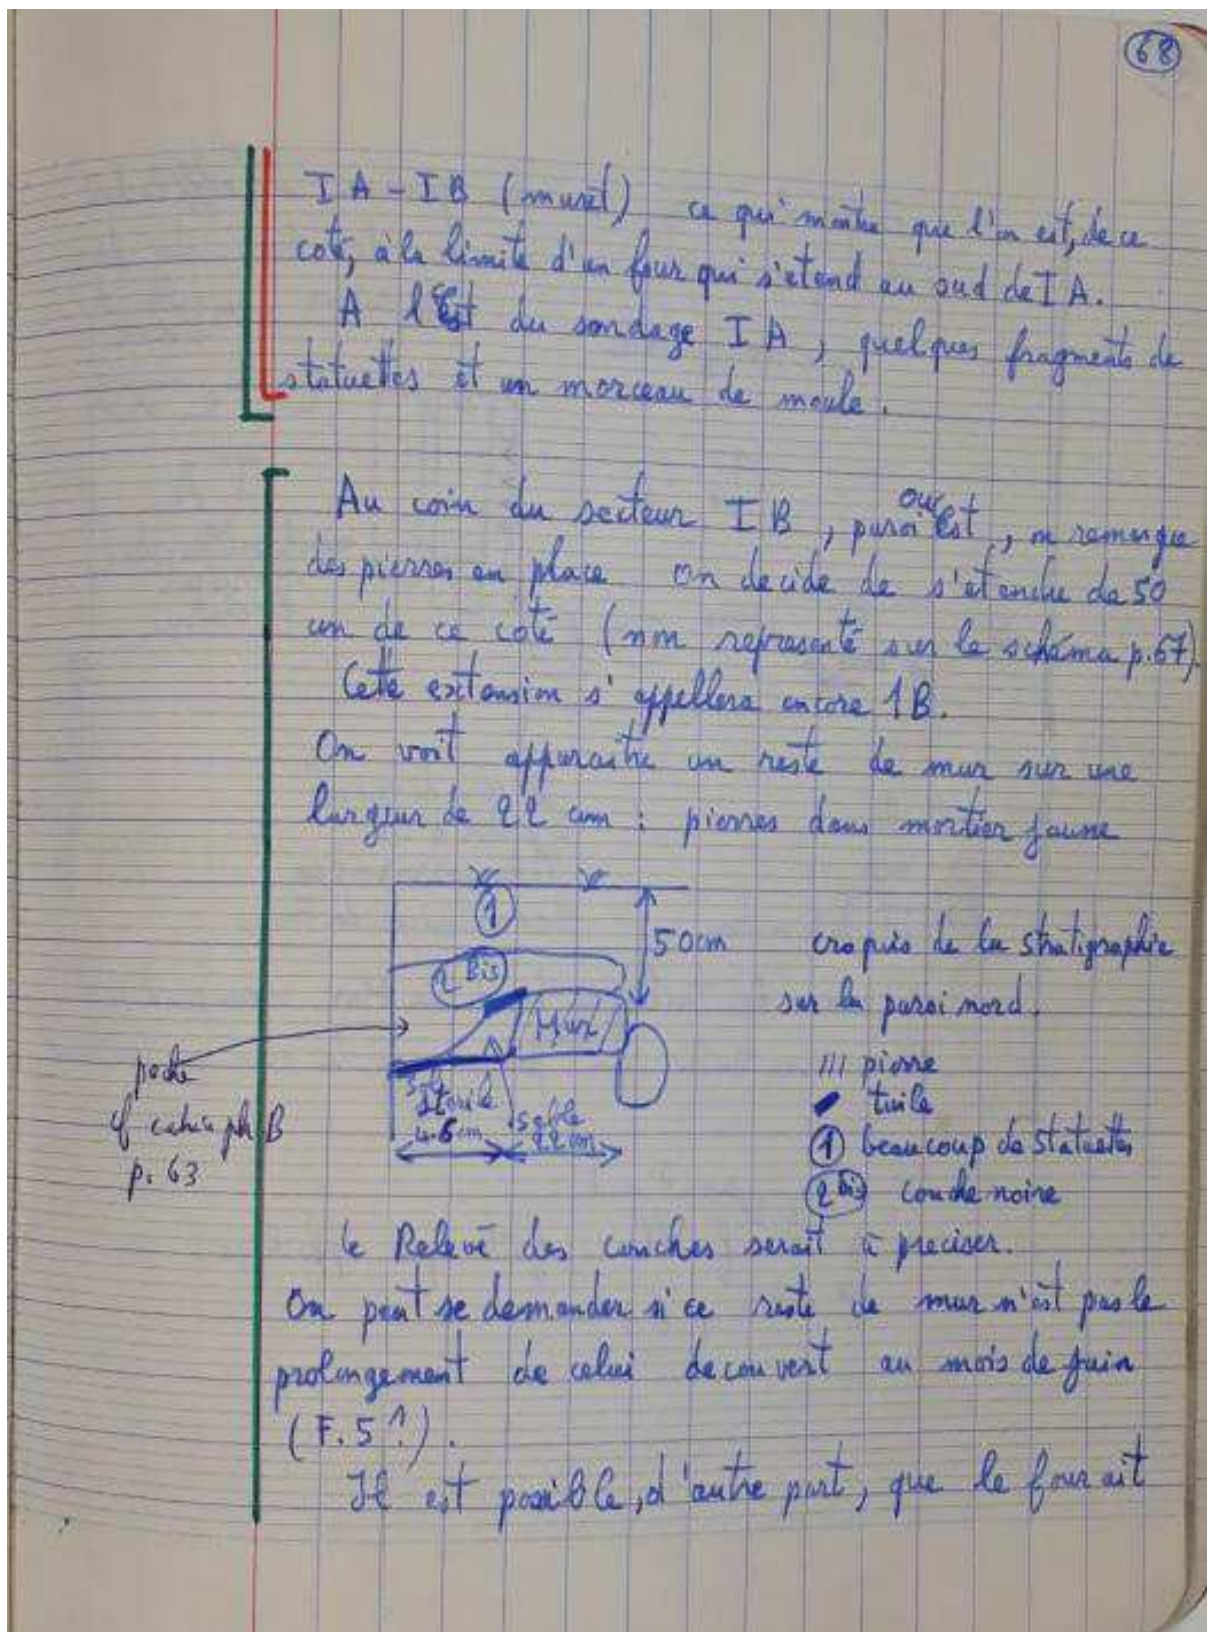 68
I A - I B (muret) ce qui montre que l'on est, de ce
coté, à la limite d'un four qui s'etend au sud de I A.
A l'Est du sondage I A, quelques fragments de
statuettes et un morceau de moule.
Au coin du secteur I B, paroi ouest, on remarque
des pierres en place on decide de s'etendre de 50
cm de ce coté (non representé sur le schéma p.67).
Cette extension s'appellera encore 1B.
On voit apparaitre un reste de mur sur une
largeur de 22 cm : pierres dans mortier jaune
1
50cm
2 Bis
Mur
Sol
Sterile
sable
46 cm
22 cm
poche
cf cahier ph B
p. 63
croquis de la stratigraphie
sur la paroi nord.
/// pierre
tuile
1 beaucoup de statuettes
2 Bis couche noire
le Relevé des couches serait à preciser.
On peut se demander si ce reste de mur n'est pas le
prolongement de celui decouvert au mois de juin
(F.5 ?).
Il est possible, d'autre part, que le four ait